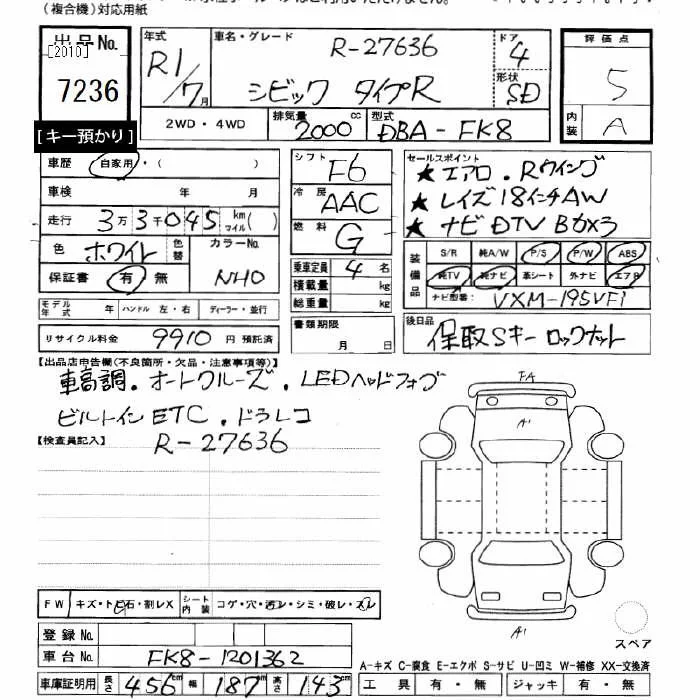 (複合機)対応用紙
出品No. 年式 車名・グレード R-27636 ドア 4 評価点
[2010] 7236 R1/7月 シビック タイプR 形状 SD 5
[キー預かり] 2WD・4WD 排気量 2000 cc 型式 DBA-FK8 内装 A
車歴 自家用・( ) シフト F6 セールスポイント
車検 年 月 冷房 AAC ★エアロ.Rウイング
走行 3万3千045 km マイル( ) ★レイズ18インチAW
色 ホワイト 色替 カラーNo. 燃料 G ★ナビDTV Bカメラ
保証書 有・無 NH0 乗車定員 4名 装備品 S/R 純A/W P/S P/W ABS
積載量 kg 純TV 純ナビ 革シート 外ナビ エアB
モデル年式 年 ハンドル 左・右 ディーラー・並行 総重量 kg ナビ型番: VXM-195VFi
リサイクル料金 9910 円 預託済 書類期限 月 日 後日品 保取Sキーロックナット
【出品店申告欄(不良箇所・欠品・注意事項等)】
車高調.オートクルーズ.LEDヘッドフォグ
ビルトインETC.ドラレコ
【検査員記入】 R-27636
FA
A1
A1
スペア
FW キズ・トビ石・割レX シート内装 コゲ・穴・汚レ・シミ・破レ・スレ
登録No.
車台No. FK8-1201362
A-キズ C-腐食 E-エクボ S-サビ U-凹ミ W-補修 XX-交換済
車庫証明用 長さ 456cm 幅 187cm 高さ 143cm 工具 有・無 ジャッキ 有・無